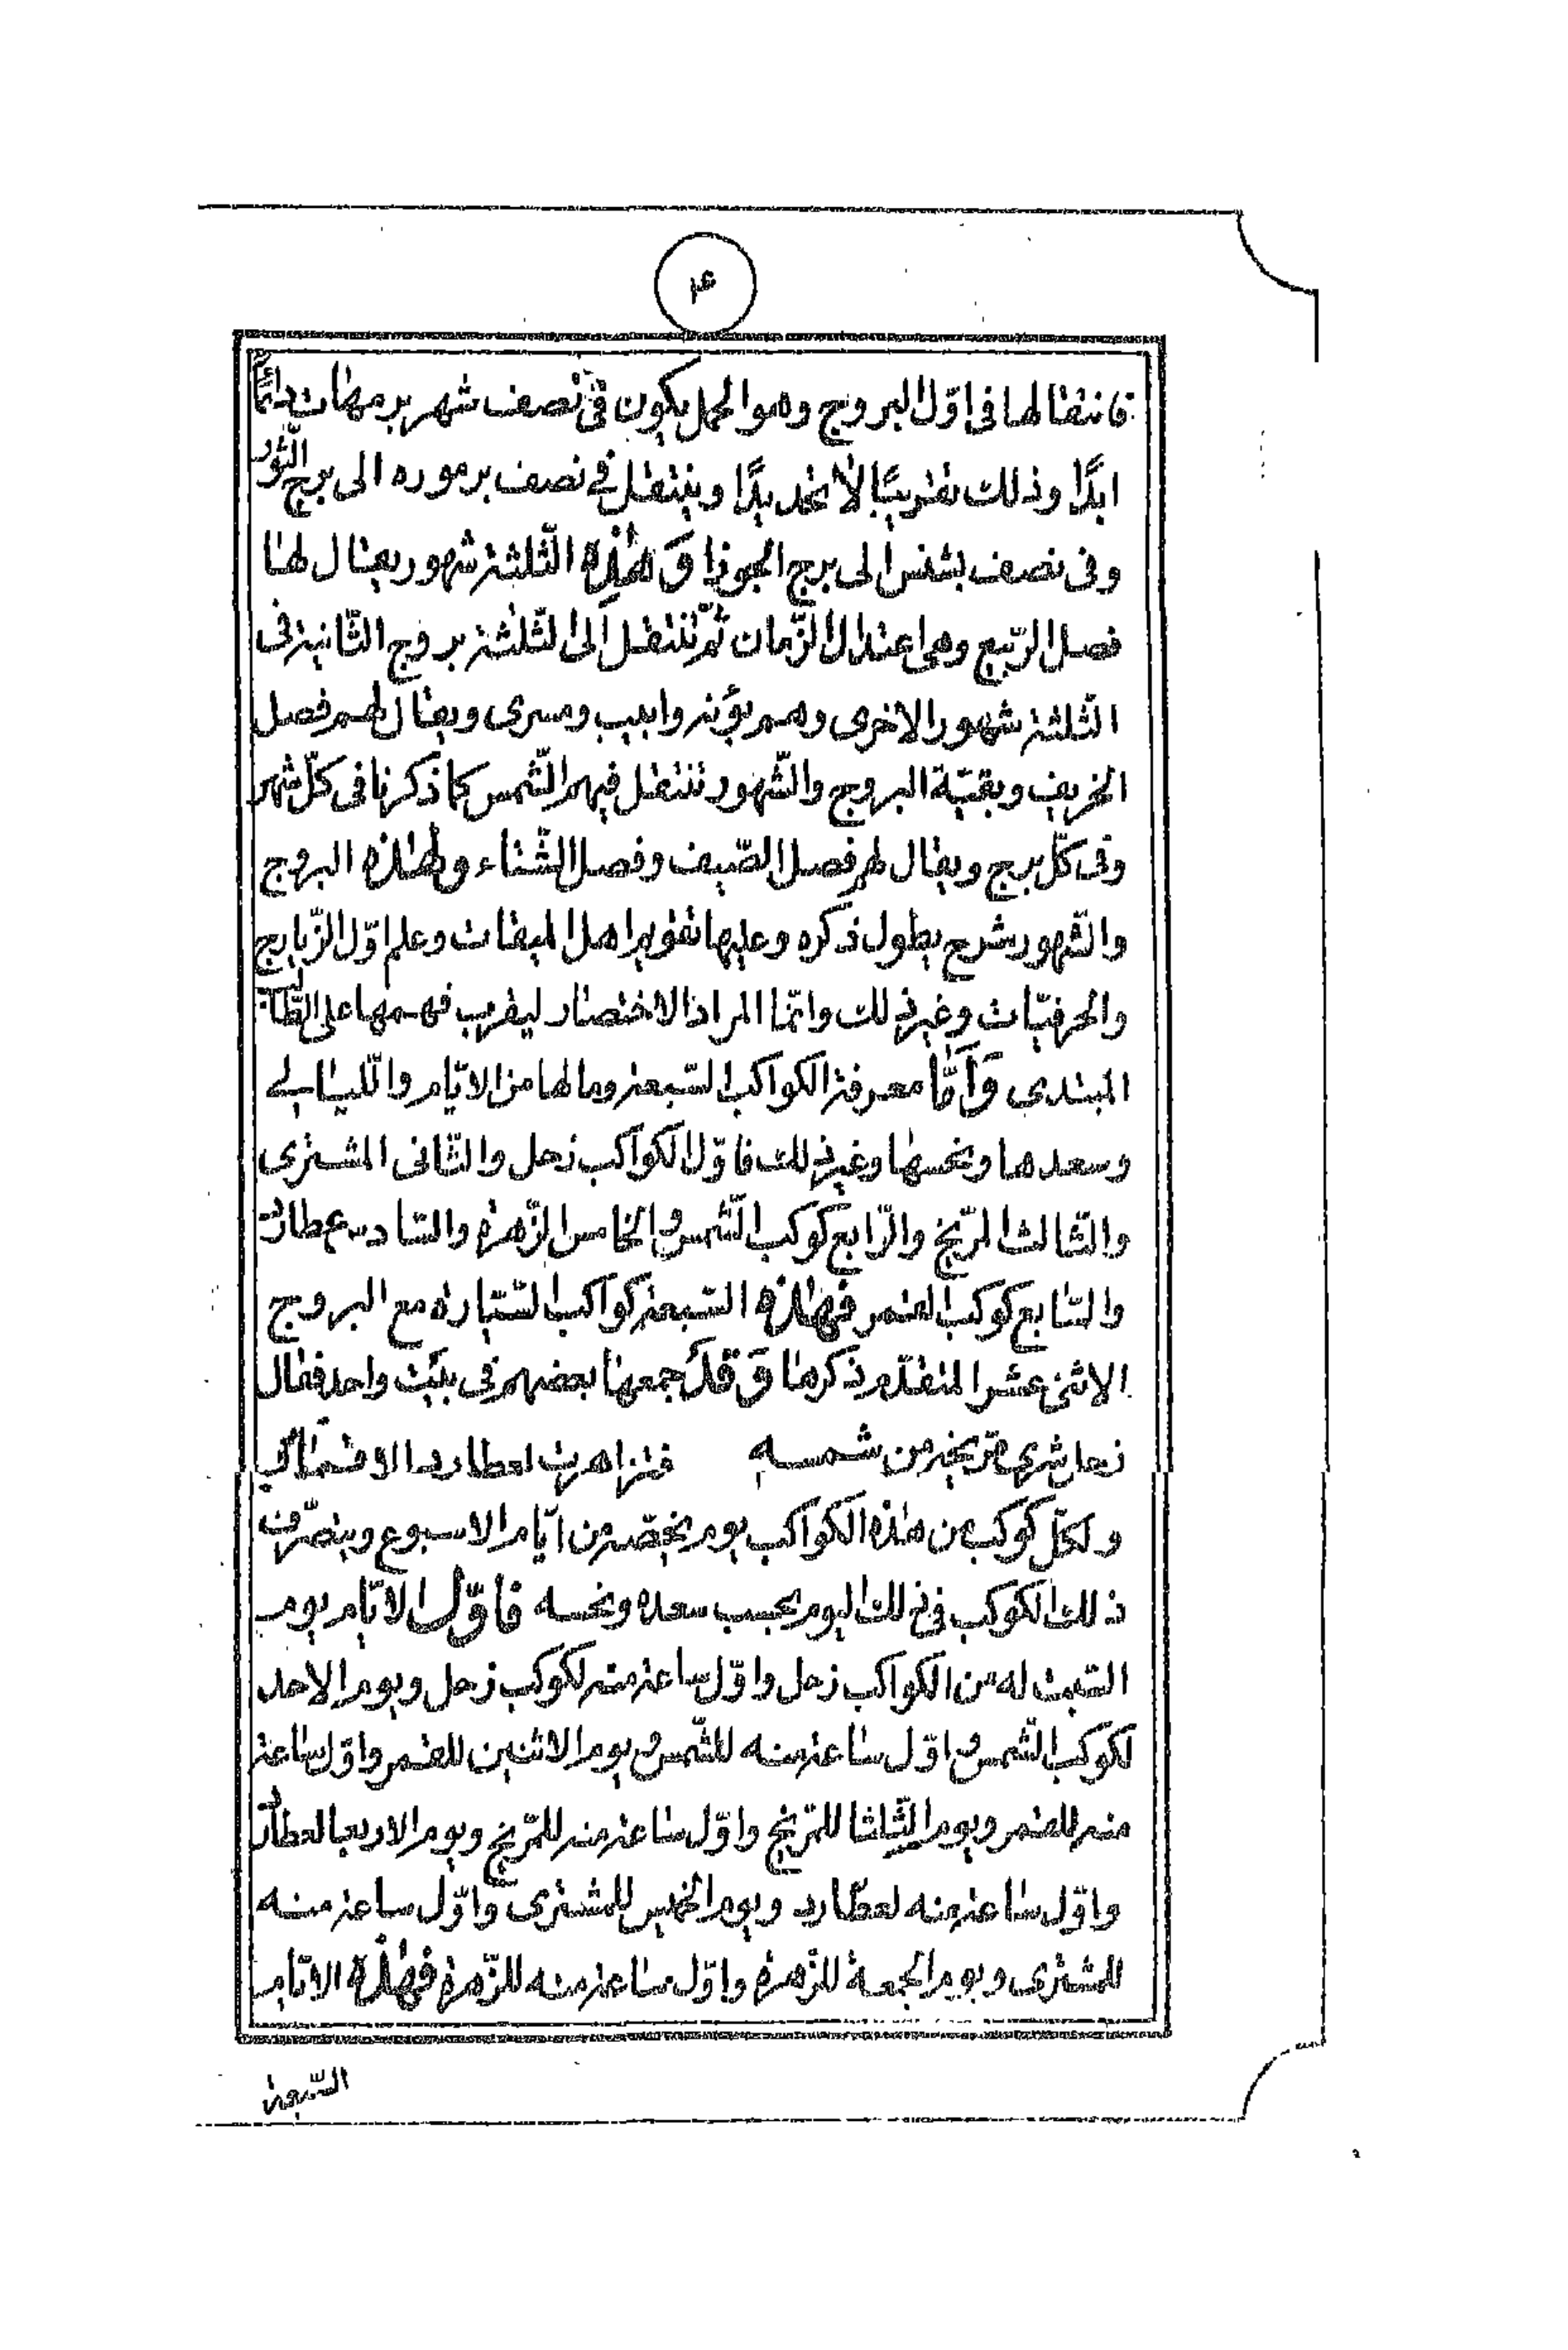 ۴
فانتقالها فى اوّل البروج وهو الحمل يكون فى نصف شهر برمهات دائمًا
ابدًا وذلك تقريبًا لا تحديدًا وينتقل فى نصف برموده الى برج الثّور
وفى نصف بشنس الى برج الجوزا وَهٰذِهِ الثّلثة شهور يقال لها
فصل الرّبيع وهى اعتدال الزّمان ثمّ تنتقل الى الثلثة بروج الثّانية فى
الثلثة شهور الاخرى وهم بؤنه وابيب ومسرى ويقال لهم فصل
الخريف وبقيّة البروج والشّهور تنتقل فيهم الشّمس كما ذكرنا فى كلّ شهر
وفى كلّ برج ويقال لهم فصل الصّيف وفصل الشّتاء ولهٰذه البروج
والشّهور شرح يطول ذكره وعليها تقويم اهل الميقات وعلم اوّل الزّيارج
والحرفيّات وغير ذلك وانّما المراد الاختصار ليقرب فهمها على الطّالب
المبتدى وَاَمَّا معرفة الكواكب السّبعة وما لها من الايّام واللّيالى
وسعدها ونحسها وغير ذلك فاوّل الكواكب زحل والثّانى المشترى
والثّالث المرّيخ والرّابع كوكب الشّمس والخامس الزّهرة والسّادس عطارد
والسّابع كوكب القمر فهٰذه السّبعة كواكب السّيّاره مع البروج
الاثنى عشر المتقدّم ذكرها وَقَدْ جمعها بعضهم فى بَيْت واحد فقال
زحل شرى مرّيخه من شمسه فتزاهرت لعطارد الاقمار
ولكلّ كوكب من هٰذه الكواكب يوم يخصّه من ايّام الاسبوع ويتصرّف
ذلك الكوكب فى ذلك اليوم بحسب سعده ونحسه فاوّل الايّام يوم
السّبت له من الكواكب زحل واوّل ساعة منه لكوكب زحل ويوم الاحد
لكوكب الشّمس واوّل ساعة منه للشّمس ويوم الاثنين للقمر واوّل ساعة
منه للقمر ويوم الثّلاثا للمرّيخ واوّل ساعة منه للمرّيخ ويوم الاربعا لعطارد
واوّل ساعة منه لعطارد ويوم الخميس للمشترى واوّل ساعة منه
للمشترى ويوم الجمعة للزّهرة واوّل ساعة منه للزّهرة فهٰذه الايّام
السّبعة